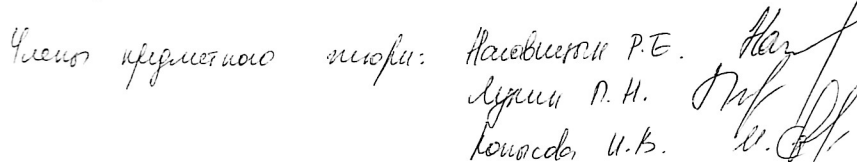 Члены предметного жюри: Наговицын Р.Е.
Лукин П.Н.
Копысова И.В.